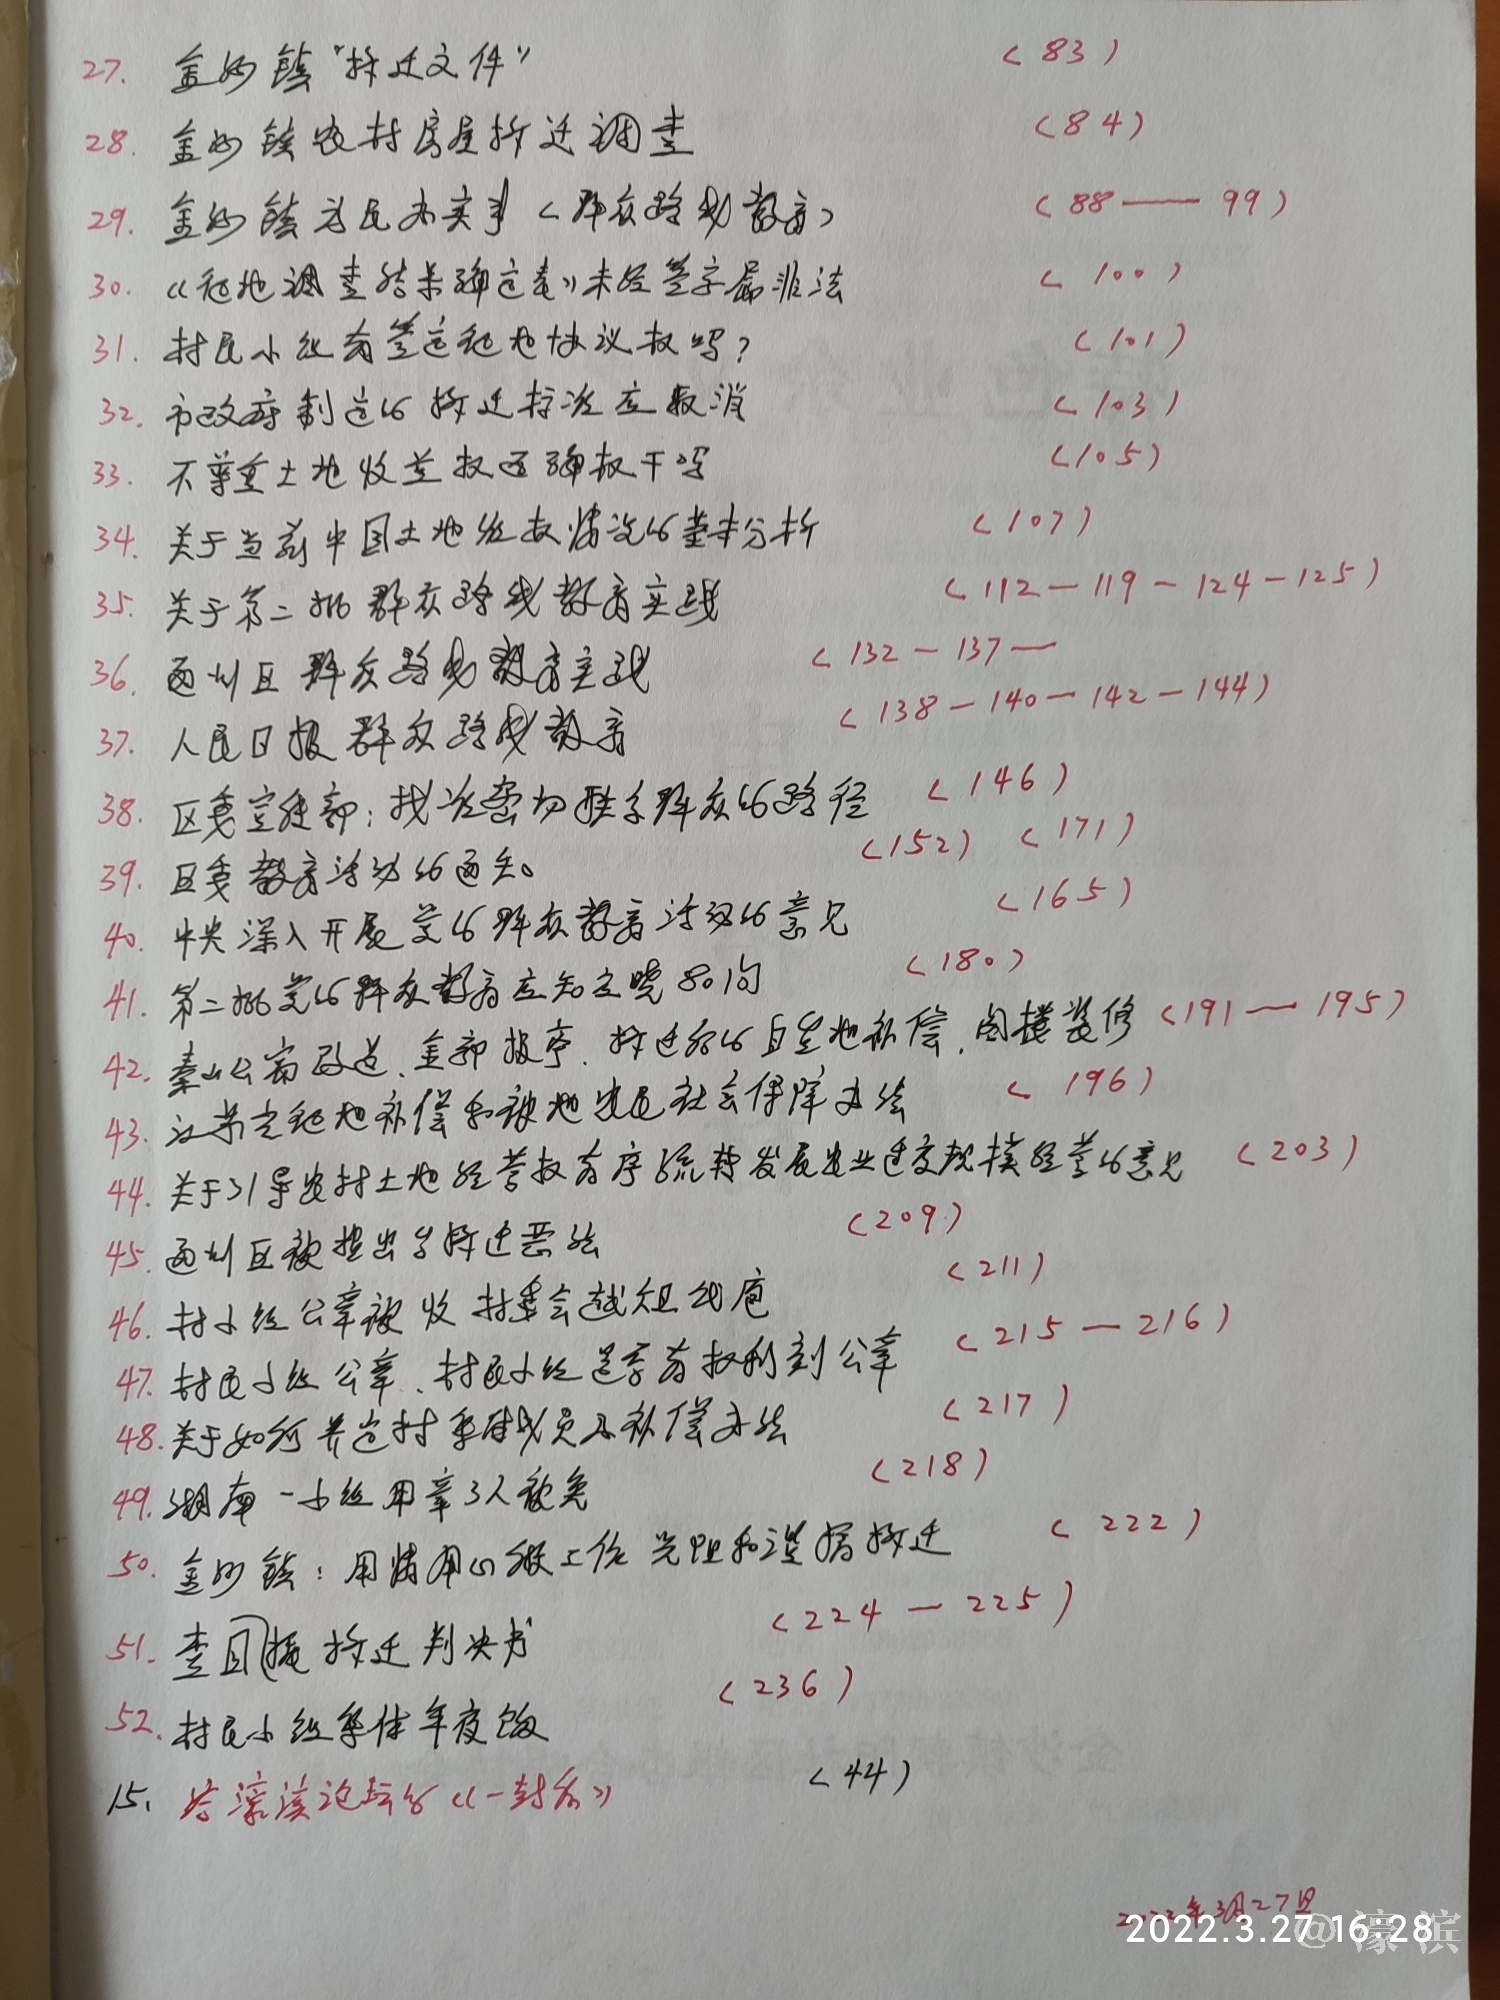 27. 金沙镇“拆迁文件” (83)
28. 金沙镇农村房屋拆迁调查 (84)
29. 金沙镇为民办实事〈群众路线教育〉 (88——99)
30. 《征地调查结果确定表》未经签字属非法 (100)
31. 村民小组有签定征地协议权吗? (101)
32. 市政府制定的拆迁标准应取消 (103)
33. 不尊重土地收益权还确权干吗 (105)
34. 关于当前中国土地维权情况的基本分析 (107)
35. 关于第二批群众路线教育实践 (112—119—124—125)
36. 通州区群众路线教育实践 (132—137—
37. 人民日报群众路线教育 (138—140—142—144)
38. 区委宣传部:找准密切联系群众的路径 (146)
39. 区委教育活动的通知。 (152) (171)
40. 中央深入开展党的群众教育活动的意见 (165)
41. 第二批党的群众教育应知应晓80问 (180)
42. 秦山公寓改造、金郭报亭、拆迁的自留地补偿、阁楼装修 (191—195)
43. 江苏省征地补偿和被地农民社会保障办法 (196)
44. 关于引导农村土地经营权有序流转发展农业适度规模经营的意见 (203)
45. 通州区被揭出台拆迁恶法 (209)
46. 村小组公章被收 村委会越俎代庖 (211)
47. 村民小组公章、村民小组是否有权利刻公章 (215—216)
48. 关于如何界定村集体成员及补偿办法 (217)
49. 湖南一小组用章3人被免 (218)
50. 金沙镇:用情用心做工作 为民和谐拆迁 (222)
51. 李国 拆迁判决书 (224—225)
52. 村民小组集体年夜饭 (236)
15. 给濠滨论坛的《一封信》 (44)
2022年3月27日
2022.3.27 16:28
@濠滨